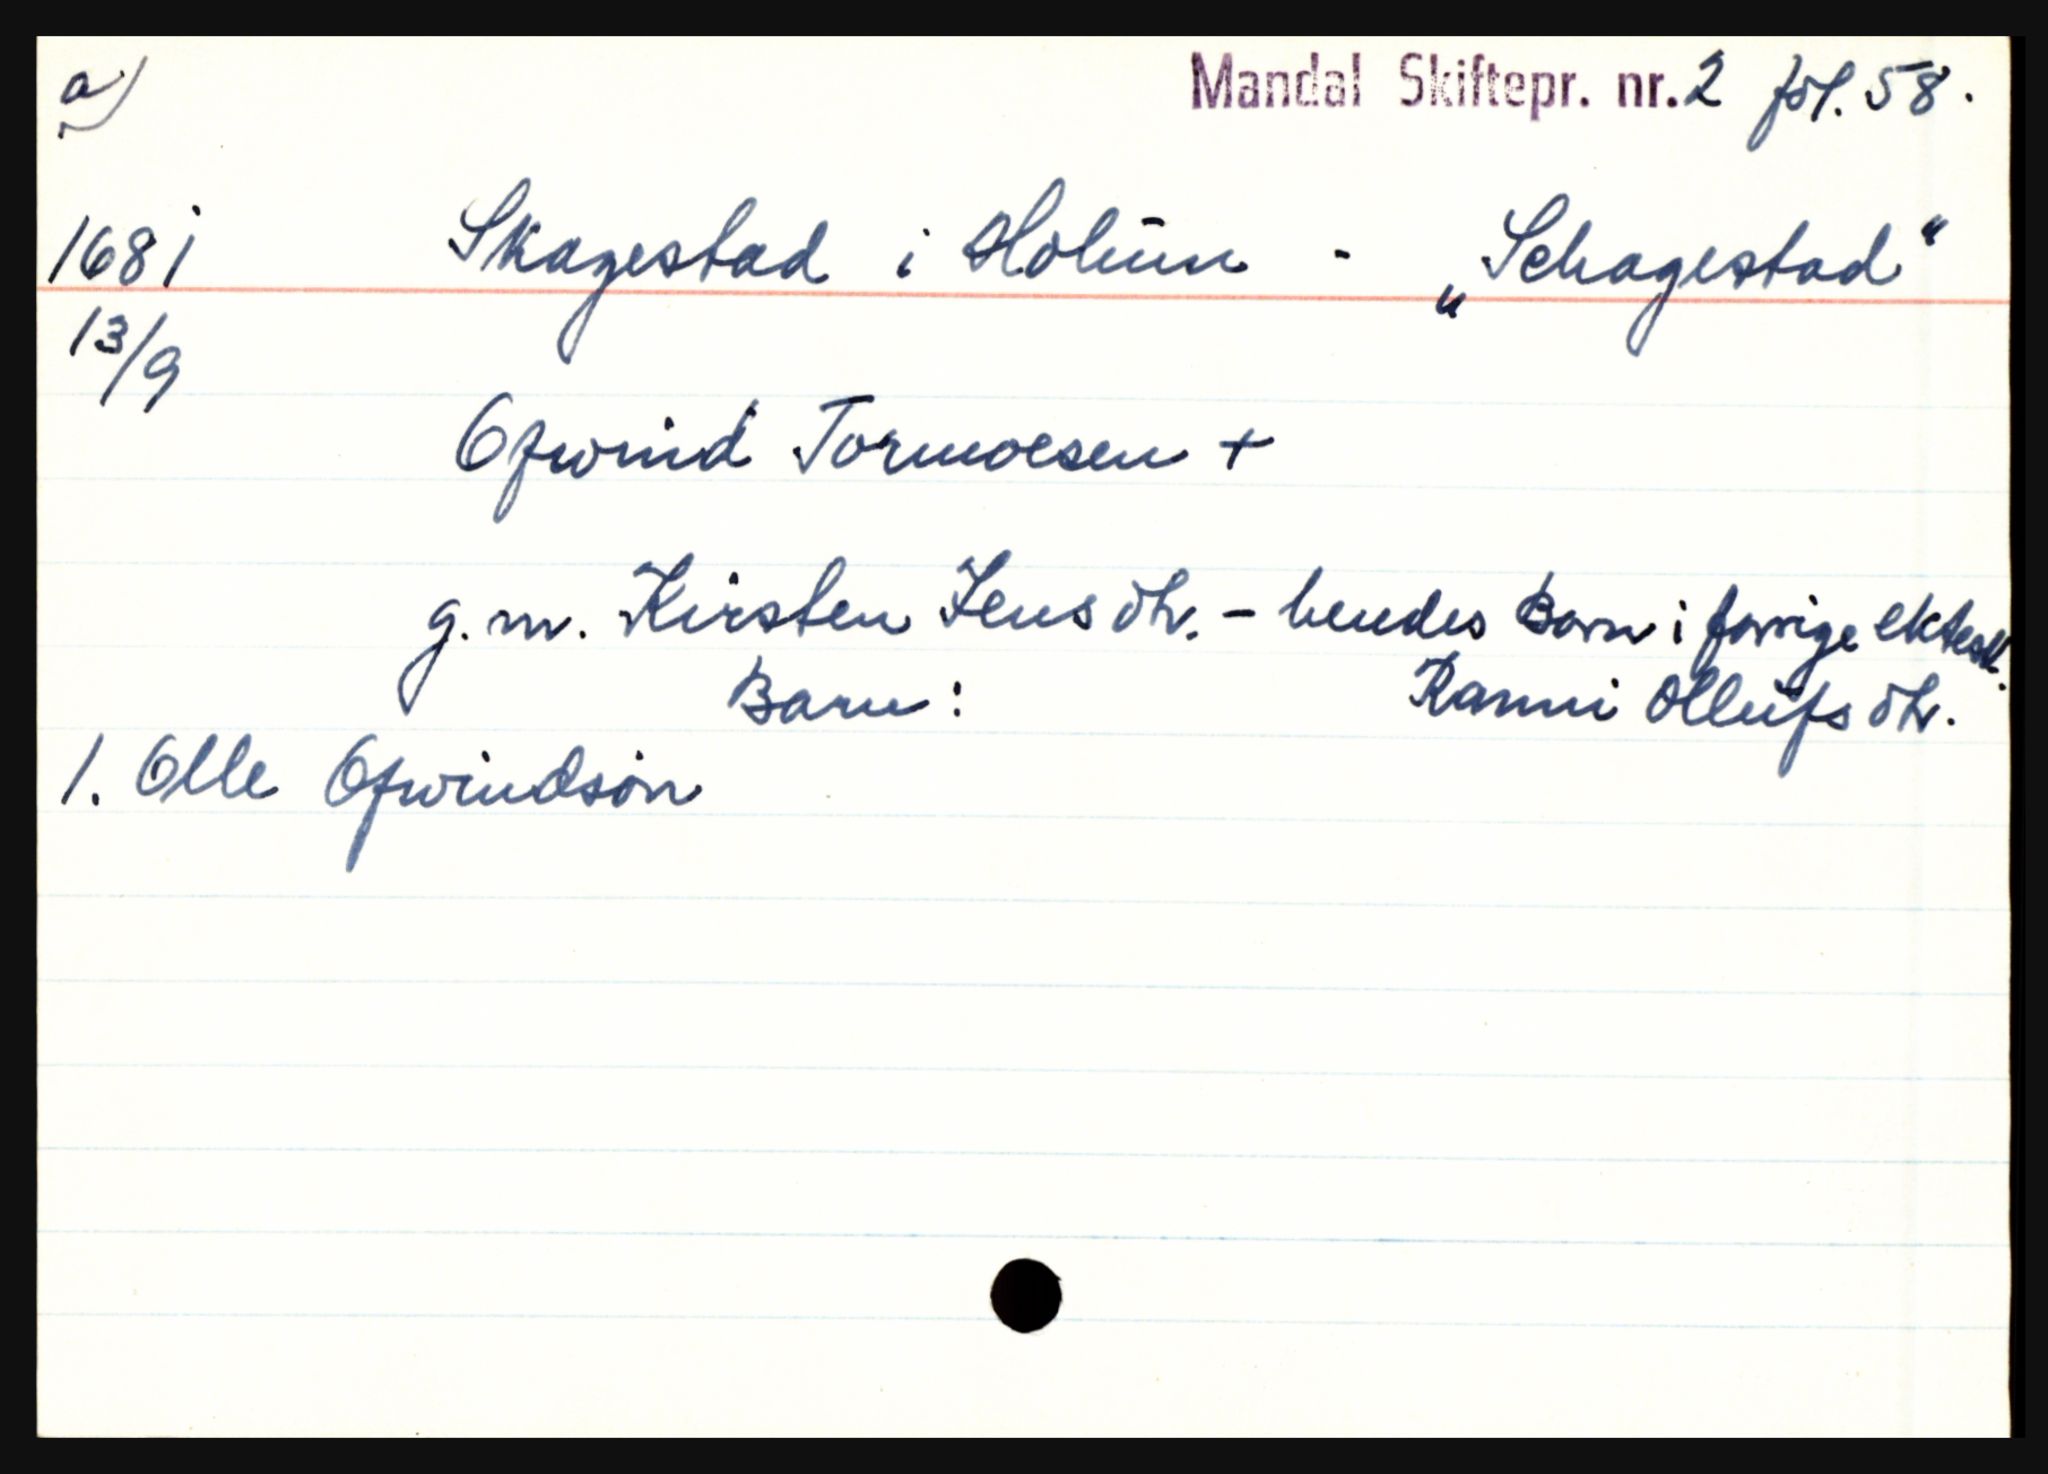 a) Mandal Skiftepr. nr. 2 fol. 58.
1681 Skagestad i Holum - „Schagestad“
13/9
Ofwind Tormoesen +
g. m. Kirsten Jensdtr. - hendes Børn i forrige ektesk.
Barn: Ranni Ollufsdtr.
1. Olle Ofwindsøn